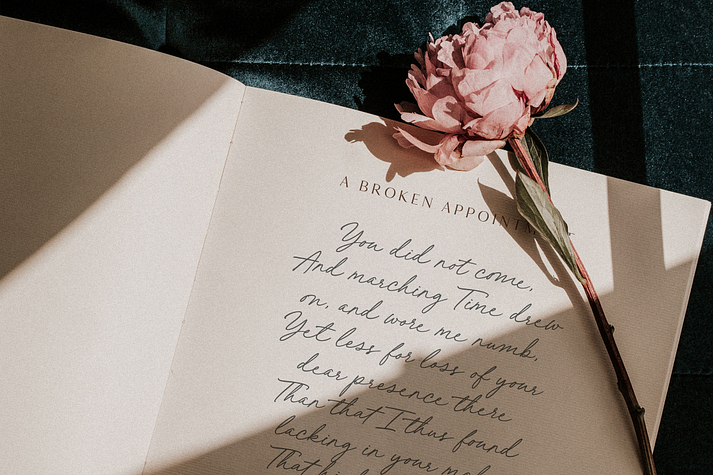 A BROKEN APPOINTM
You did not come,
And marching Time drew
on, and wore me numb.
Yet less for loss of your
dear presence there
Than that I thus found
lacking in your
That